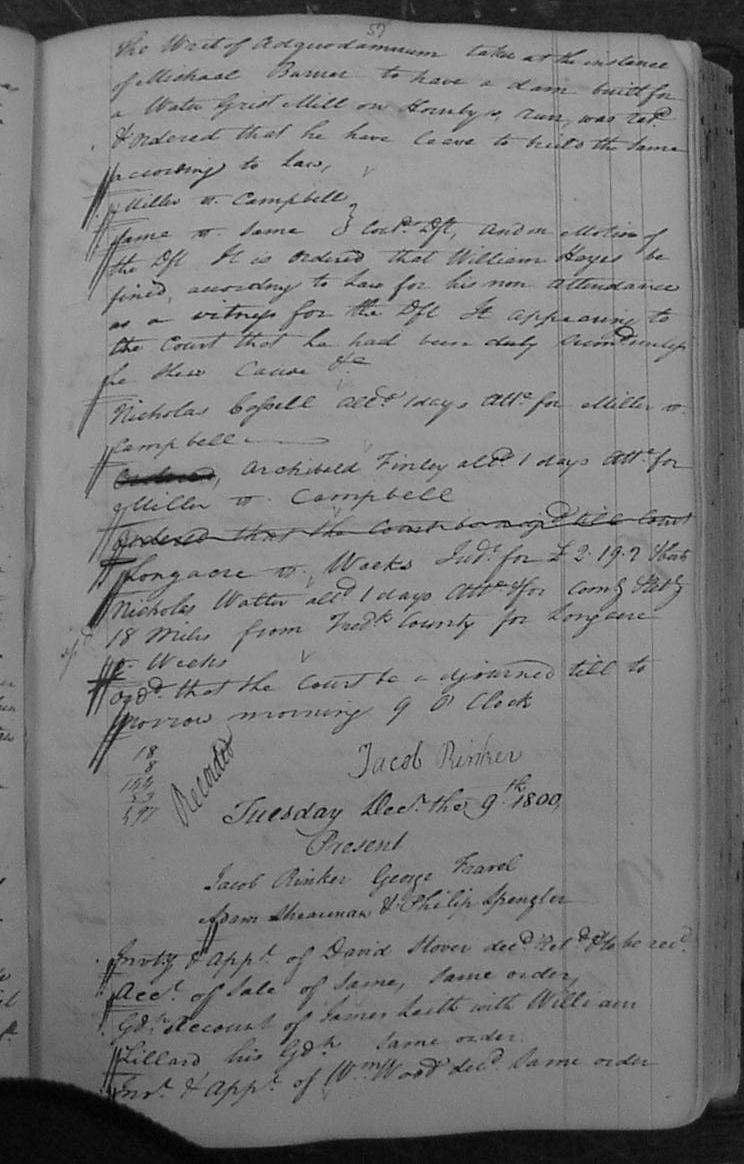 57
The Writ of Adquodamnum taken at the instance
of Michael Barner to have a dam built for
a Water Grist Mill on Hornbys run, was retd.
& ordered that he have leave to build the same
according to Law,
Miller vs. Campbell
Same vs. Same } Contd. Dft, and on Motion of
the Dft It is Ordered that William Hayes be
fined, according to Law for his non attendance
as a witness for the Dft It appearing to
the Court that he had been duly summd. unless
he shew Cause &c
Nicholas Cossell alld. 1 days Atte. for Miller vs.
Campbell
Ordered, Archibald Finley alld. 1 days Atte. for
Miller vs. Campbell
Ordered that the Court be adjd till Court
Longacre vs. Weeks Judt. for £2.19.2 & Costs
Nicholas Watter alld. 1 days Atte & for Comg & Retg
18 Miles from Fredk. County for Longacre
vs. Weeks
Ordd. that the Court be adjourned till to
morrow morning 9 O Clock
18
8
144
53
197
Recorded
Jacob Rinker
Tuesday Decr. the 9th. 1800,
Present
Jacob Rinker George Fravel
Adam Shearman & Philip Spengler
Invty & Appt. of David Stover decd. Retd. & to be recd.
Acct. of Sale of Same, Same order,
Gdn. Account of James Leith with William
Lillard his Gdn. Same order.
Invt. & Appt. of Wm. Wood decd. Same order